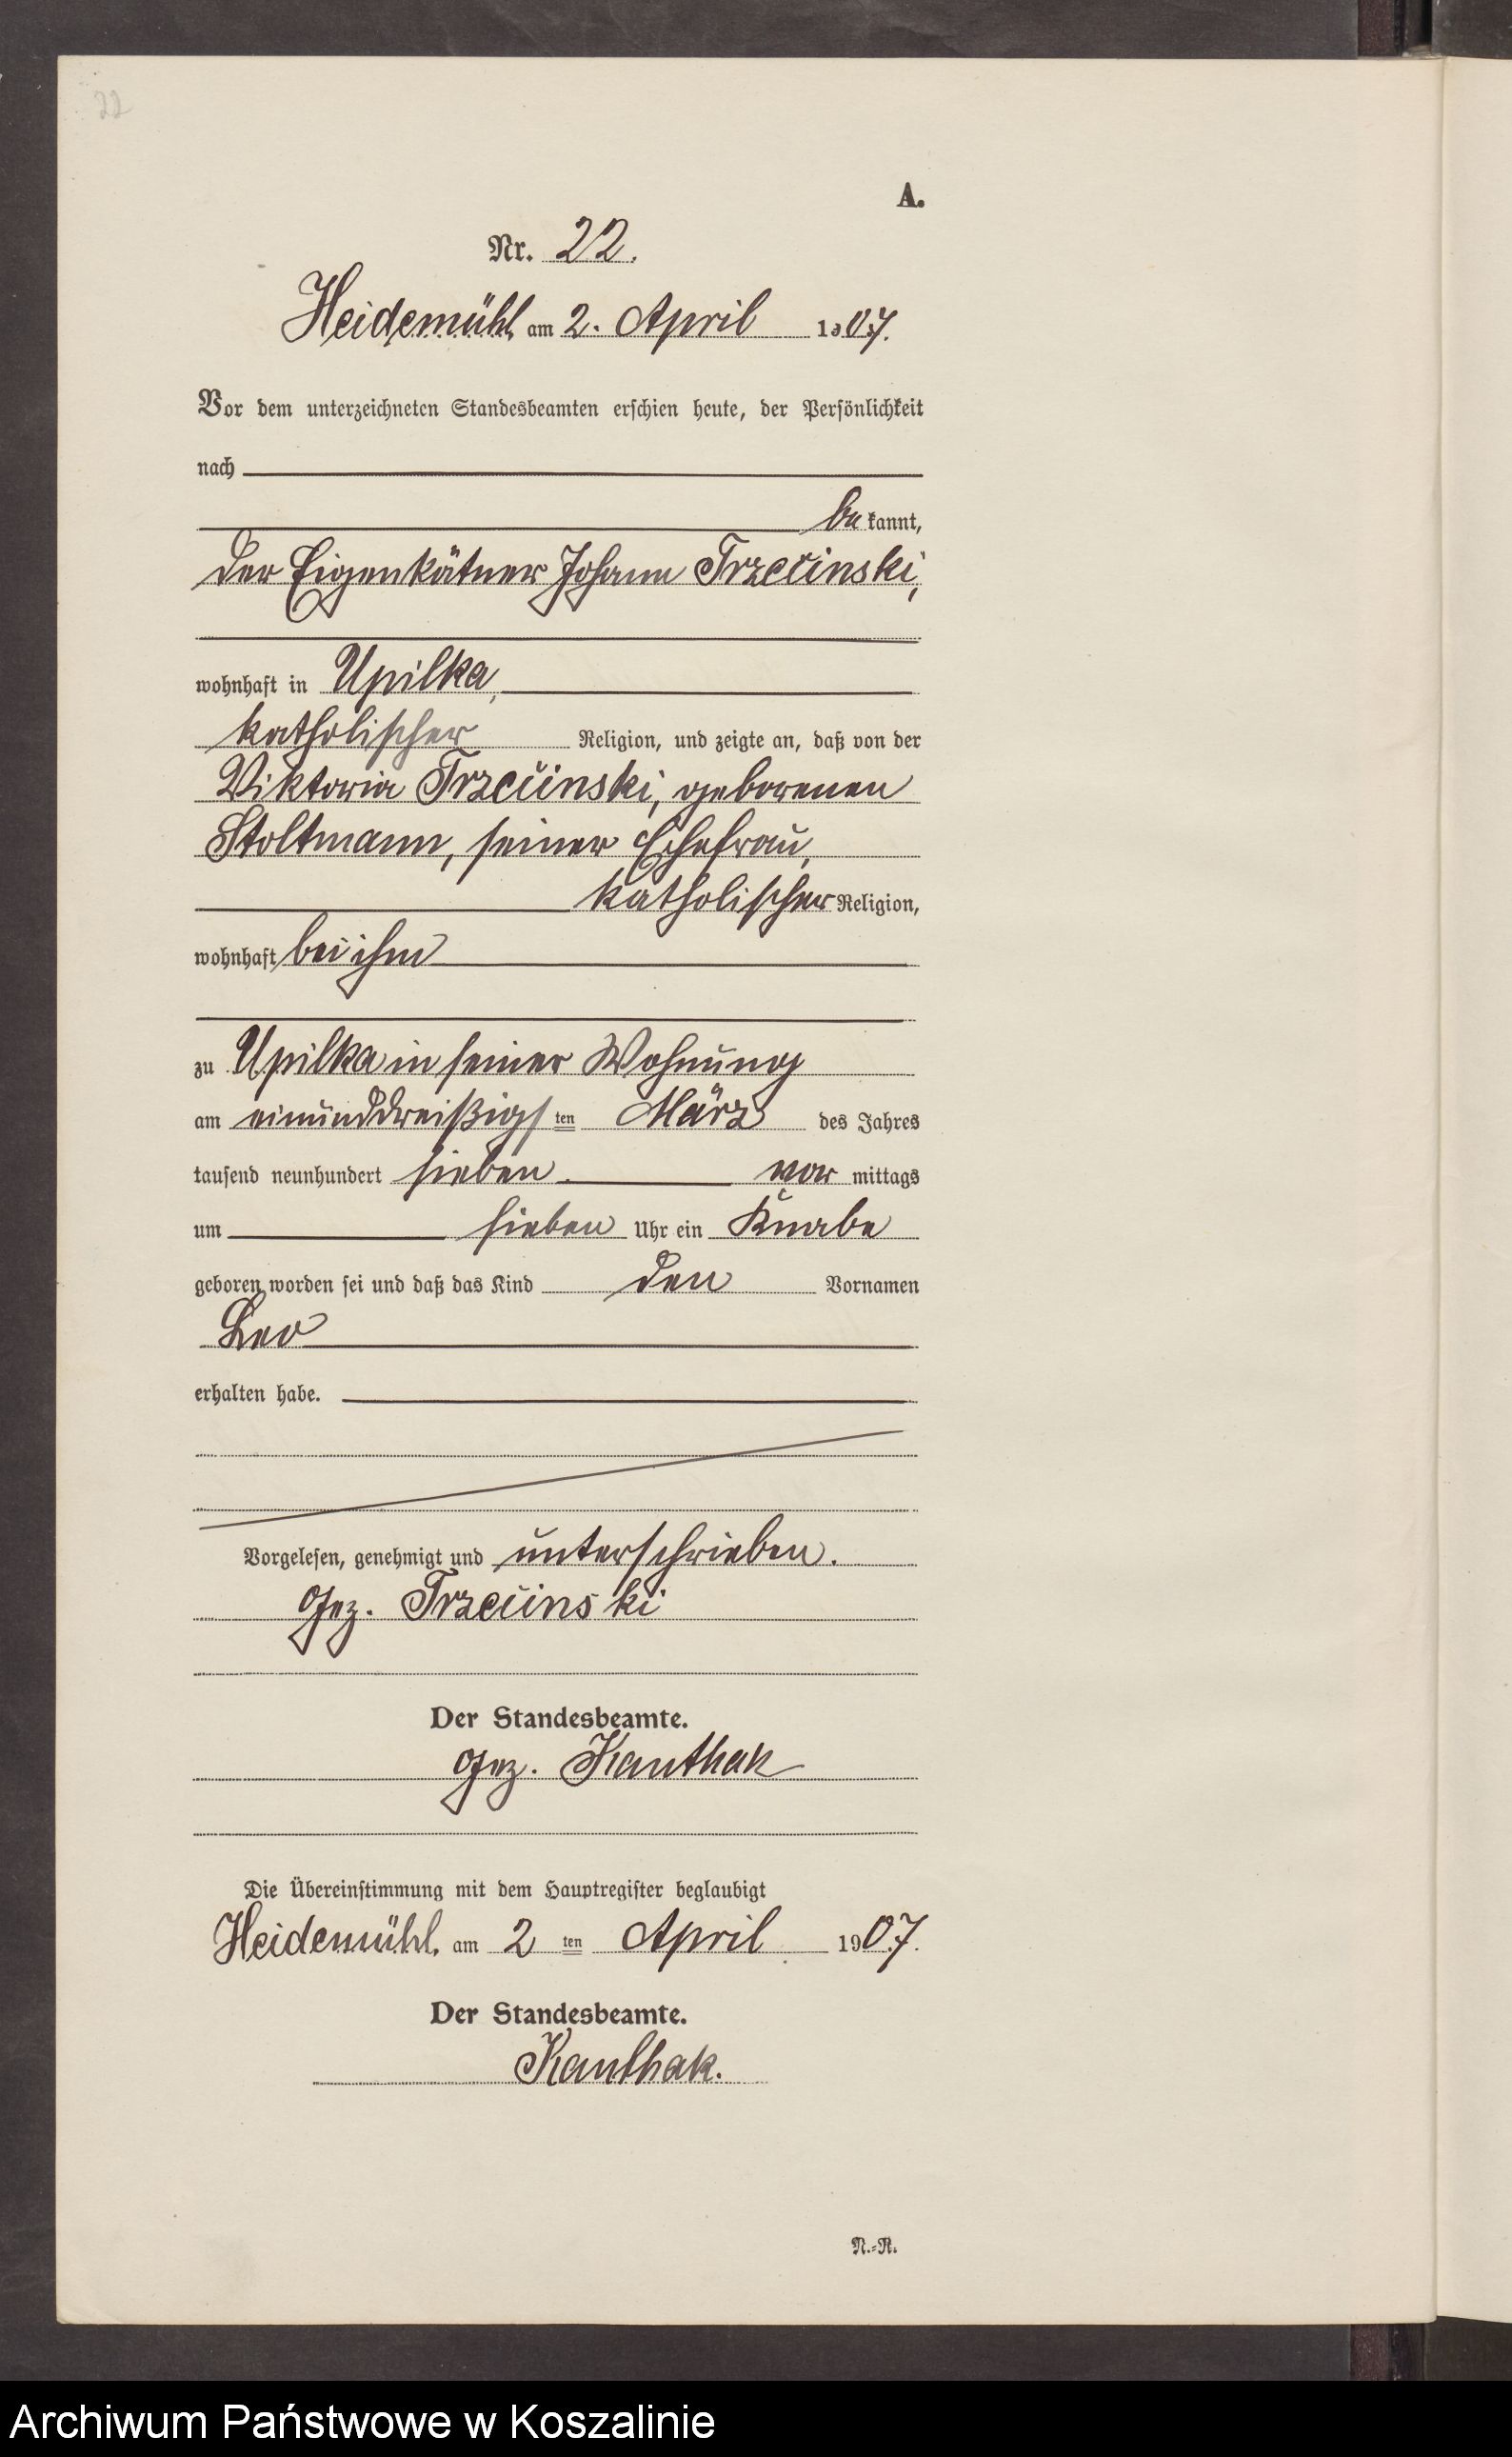 22
A.
Nr. 22.
Heidemühl, am 2. April 1907.
Vor dem unterzeichneten Standesbeamten erschien heute, der Persönlichkeit
nach
be kannt,
der Eigenkätner Johann Trzečinski,
wohnhaft in Upilka,
katholischer Religion, und zeigte an, daß von der
Viktoria Trzečinski, geborenen
Stoltmann, seiner Ehefrau,
katholischer Religion,
wohnhaft bei ihm
zu Upilka in seiner Wohnung
am einunddreißigsten März des Jahres
tausend neunhundert sieben vor mittags
um sieben Uhr ein Knabe
geboren worden sei und daß das Kind den Vornamen
Leo
erhalten habe.
Vorgelesen, genehmigt und unterschrieben.
gez. Trzečinski
Der Standesbeamte.
gez. Kanthak
Die Übereinstimmung mit dem Hauptregister beglaubigt
Heidemühl, am 2 ten April 1907.
Der Standesbeamte.
Kanthak.
N.-R.
Archiwum Państwowe w Koszalinie